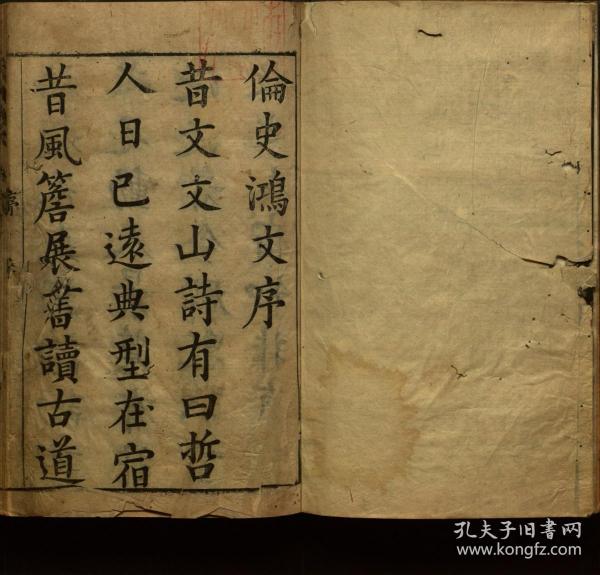 倫史鴻文序
昔文文山詩有曰哲
人日已遠典型在宿
昔風簷展舊讀古道
序
孔夫子旧书网
www.kongfz.com